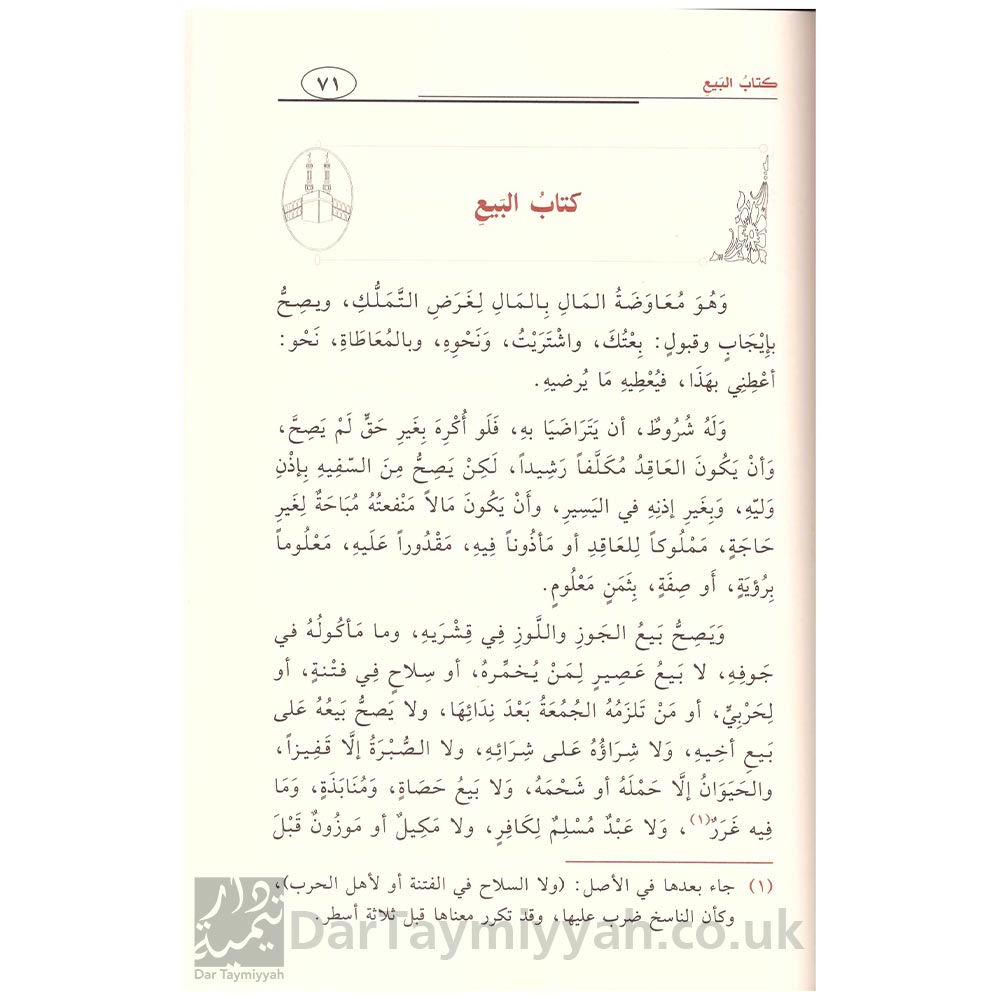 كتابُ البَيعِ
٧١
كتابُ البَيعِ
وَهُوَ مُعَاوَضَةُ المَالِ بِالمَالِ لِغَرَضِ التَّمَلُّكِ، ويصِحُّ
بإِيْجَابٍ وقبولٍ: بِعْتُكَ، واشْتَرَيْتُ، وَنَحْوِهِ، وبالمُعَاطَاةِ، نَحْو:
أعْطِنِي بهَذَا، فيُعْطِيهِ مَا يُرضيهِ.
وَلَهُ شُرُوطٌ، أن يَتَرَاضَيَا بهِ، فَلَو أُكْرِهَ بِغَيرِ حَقٍّ لَمْ يَصِحَّ،
وَأنْ يَكُونَ العَاقِدُ مُكَلَّفاً رَشِيداً، لَكِنْ يَصِحُّ مِنَ السّفِيهِ بإذْنِ
وَليّهِ، وَبِغَيرِ إذنِهِ في اليَسِيرِ، وأَنْ يَكُونَ مَالاً مَنْفعتُهُ مُبَاحَةٌ لِغَيرِ
حَاجَةٍ، مَمْلُوكاً لِلعَاقِدِ أو مَأذُوناً فيهِ، مَقْدُوراً عَلَيهِ، مَعْلُوماً
بِرُؤيَةٍ، أَو صِفَةٍ، بِثَمَنٍ مَعْلُومٍ.
وَيَصِحُّ بَيعُ الجَوزِ واللَّوزِ فِي قِشْرَيهِ، وما مَأكُولُهُ في
جَوفِهِ، لا بَيعُ عَصِيرٍ لِمَنْ يُخمِّرهُ، أو سِلاحٍ فِي فتْنةٍ، أو
لِحَرْبِيٍّ، أو مَنْ تَلزَمُهُ الجُمُعَةُ بَعْدَ نِدَائِهَا، ولا يَصحُّ بَيعُهُ عَلى
بَيعِ أخيهِ، وَلا شِرَاؤُهُ عَلى شِرَائِهِ، ولا الصُّبْرَةُ إلَّا قَفِيزاً،
والحَيَوَانُ إلَّا حَمْلَهُ أو شَحْمَهُ، وَلا بَيعُ حَصَاةٍ، وَمُنَابَذَةٍ، وَمَا
فِيه غَرَرٌ(١)، وَلا عَبْدٌ مُسْلِمٌ لِكَافِرٍ، ولا مَكِيلٌ أو مَوزُونٌ قَبْلَ
(١) جاء بعدها في الأصل: (ولا السلاح في الفتنة أو لأهل الحرب)،
وكأن الناسخ ضرب عليها، وقد تكرر معناها قبل ثلاثة أسطر.
دار تيمية
Dar Taymiyyah
DarTaymiyyah.co.uk